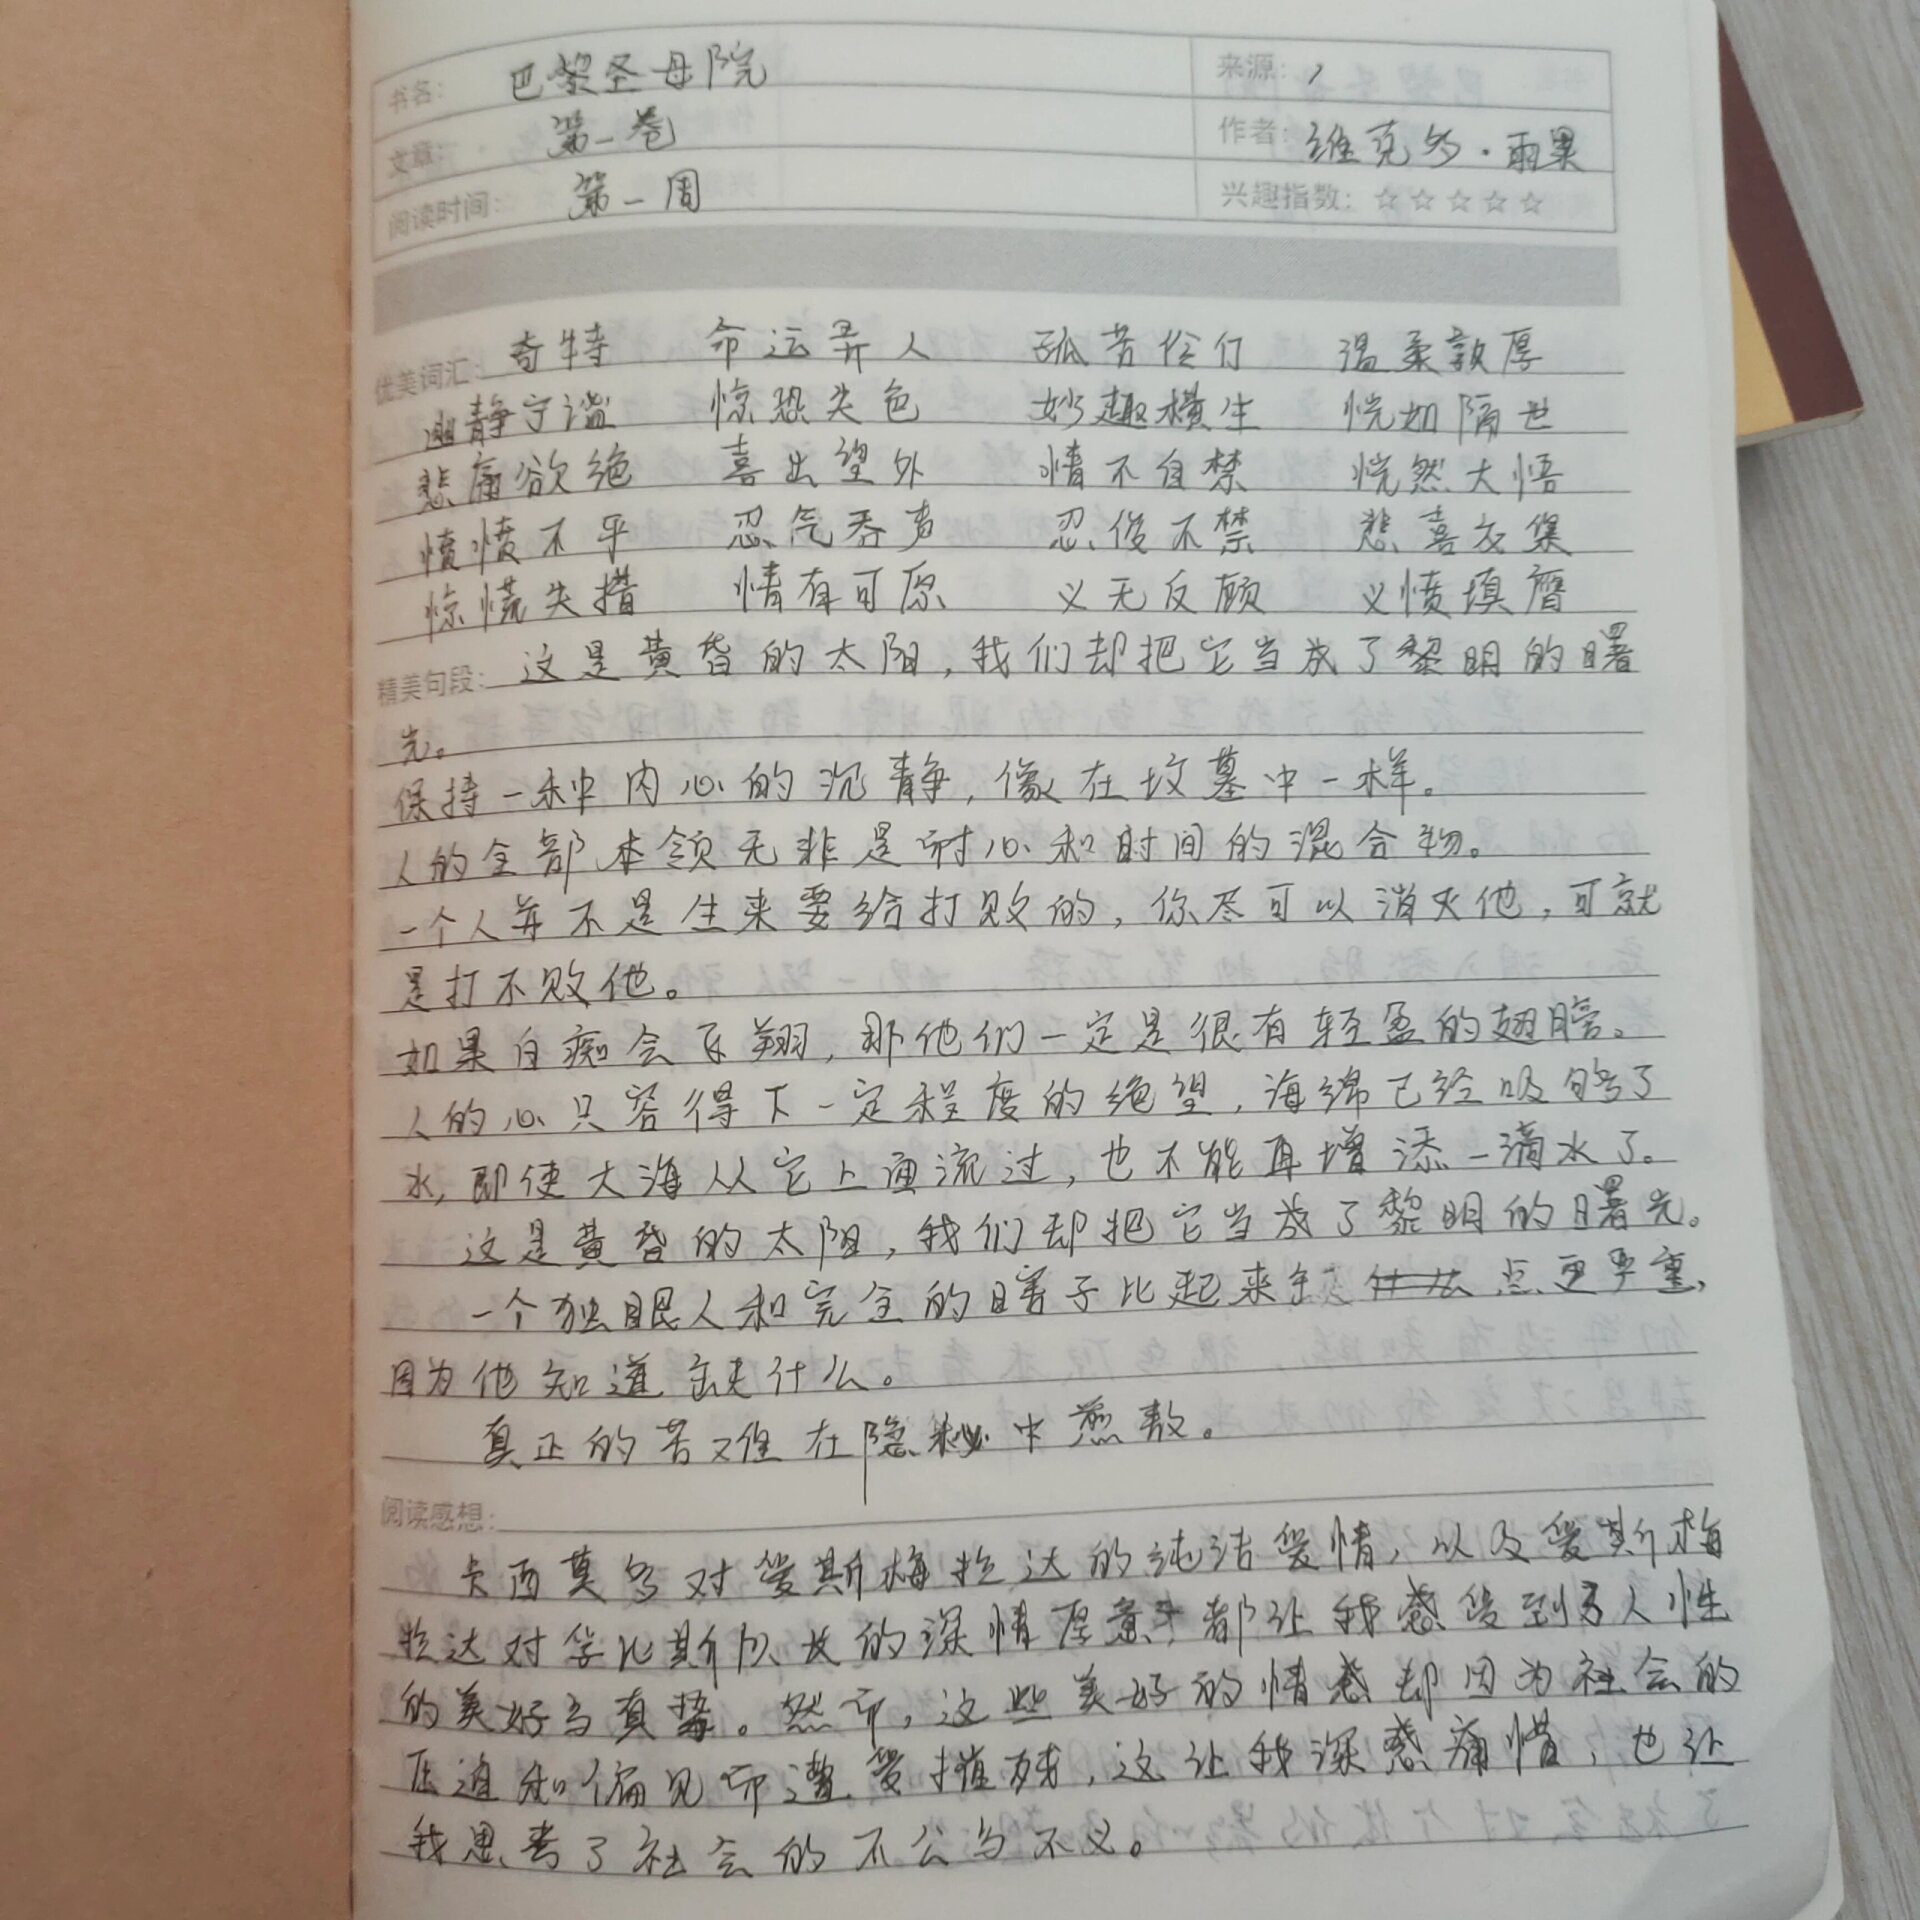 书名: 巴黎圣母院 来源: /
文章: 第一卷 作者: 维克多·雨果
阅读时间: 第一周 兴趣指数: ☆☆☆☆☆
优美词汇: 奇特 命运弄人 孤苦伶仃 温柔敦厚
幽静宁谧 惊恐失色 妙趣横生 恍如隔世
悲痛欲绝 喜出望外 情不自禁 恍然大悟
愤愤不平 忍气吞声 忍俊不禁 悲喜交集
惊慌失措 情有可原 义无反顾 义愤填膺
精美句段: 这是黄昏的太阳,我们却把它当成了黎明的曙
光。
保持一种内心的沉静,像在坟墓中一样。
人的全部本领无非是耐心和时间的混合物。
一个人并不是生来要给打败的,你尽可以消灭他,可就
是打不败他。
如果白痴会飞翔,那他们一定是很有轻盈的翅膀。
人的心只容得下一定程度的绝望,海绵已经吸够了
水,即使大海从它上面流过,也不能再增添一滴水了。
这是黄昏的太阳,我们却把它当成了黎明的曙光。
一个独眼人和完全的瞎子比起来缺点更严重,
因为他知道缺什么。
真正的苦难在隐秘中煎熬。
阅读感想:
卡西莫多对爱斯梅拉达的纯洁爱情,以及爱斯梅
拉达对孚比斯队长的深情厚意,都让我感受到了人性
的美好与真挚。然而,这些美好的情感却因为社会的
压迫和偏见而遭受摧残,这让我深感痛惜,也让
我思考了社会的不公与不义。